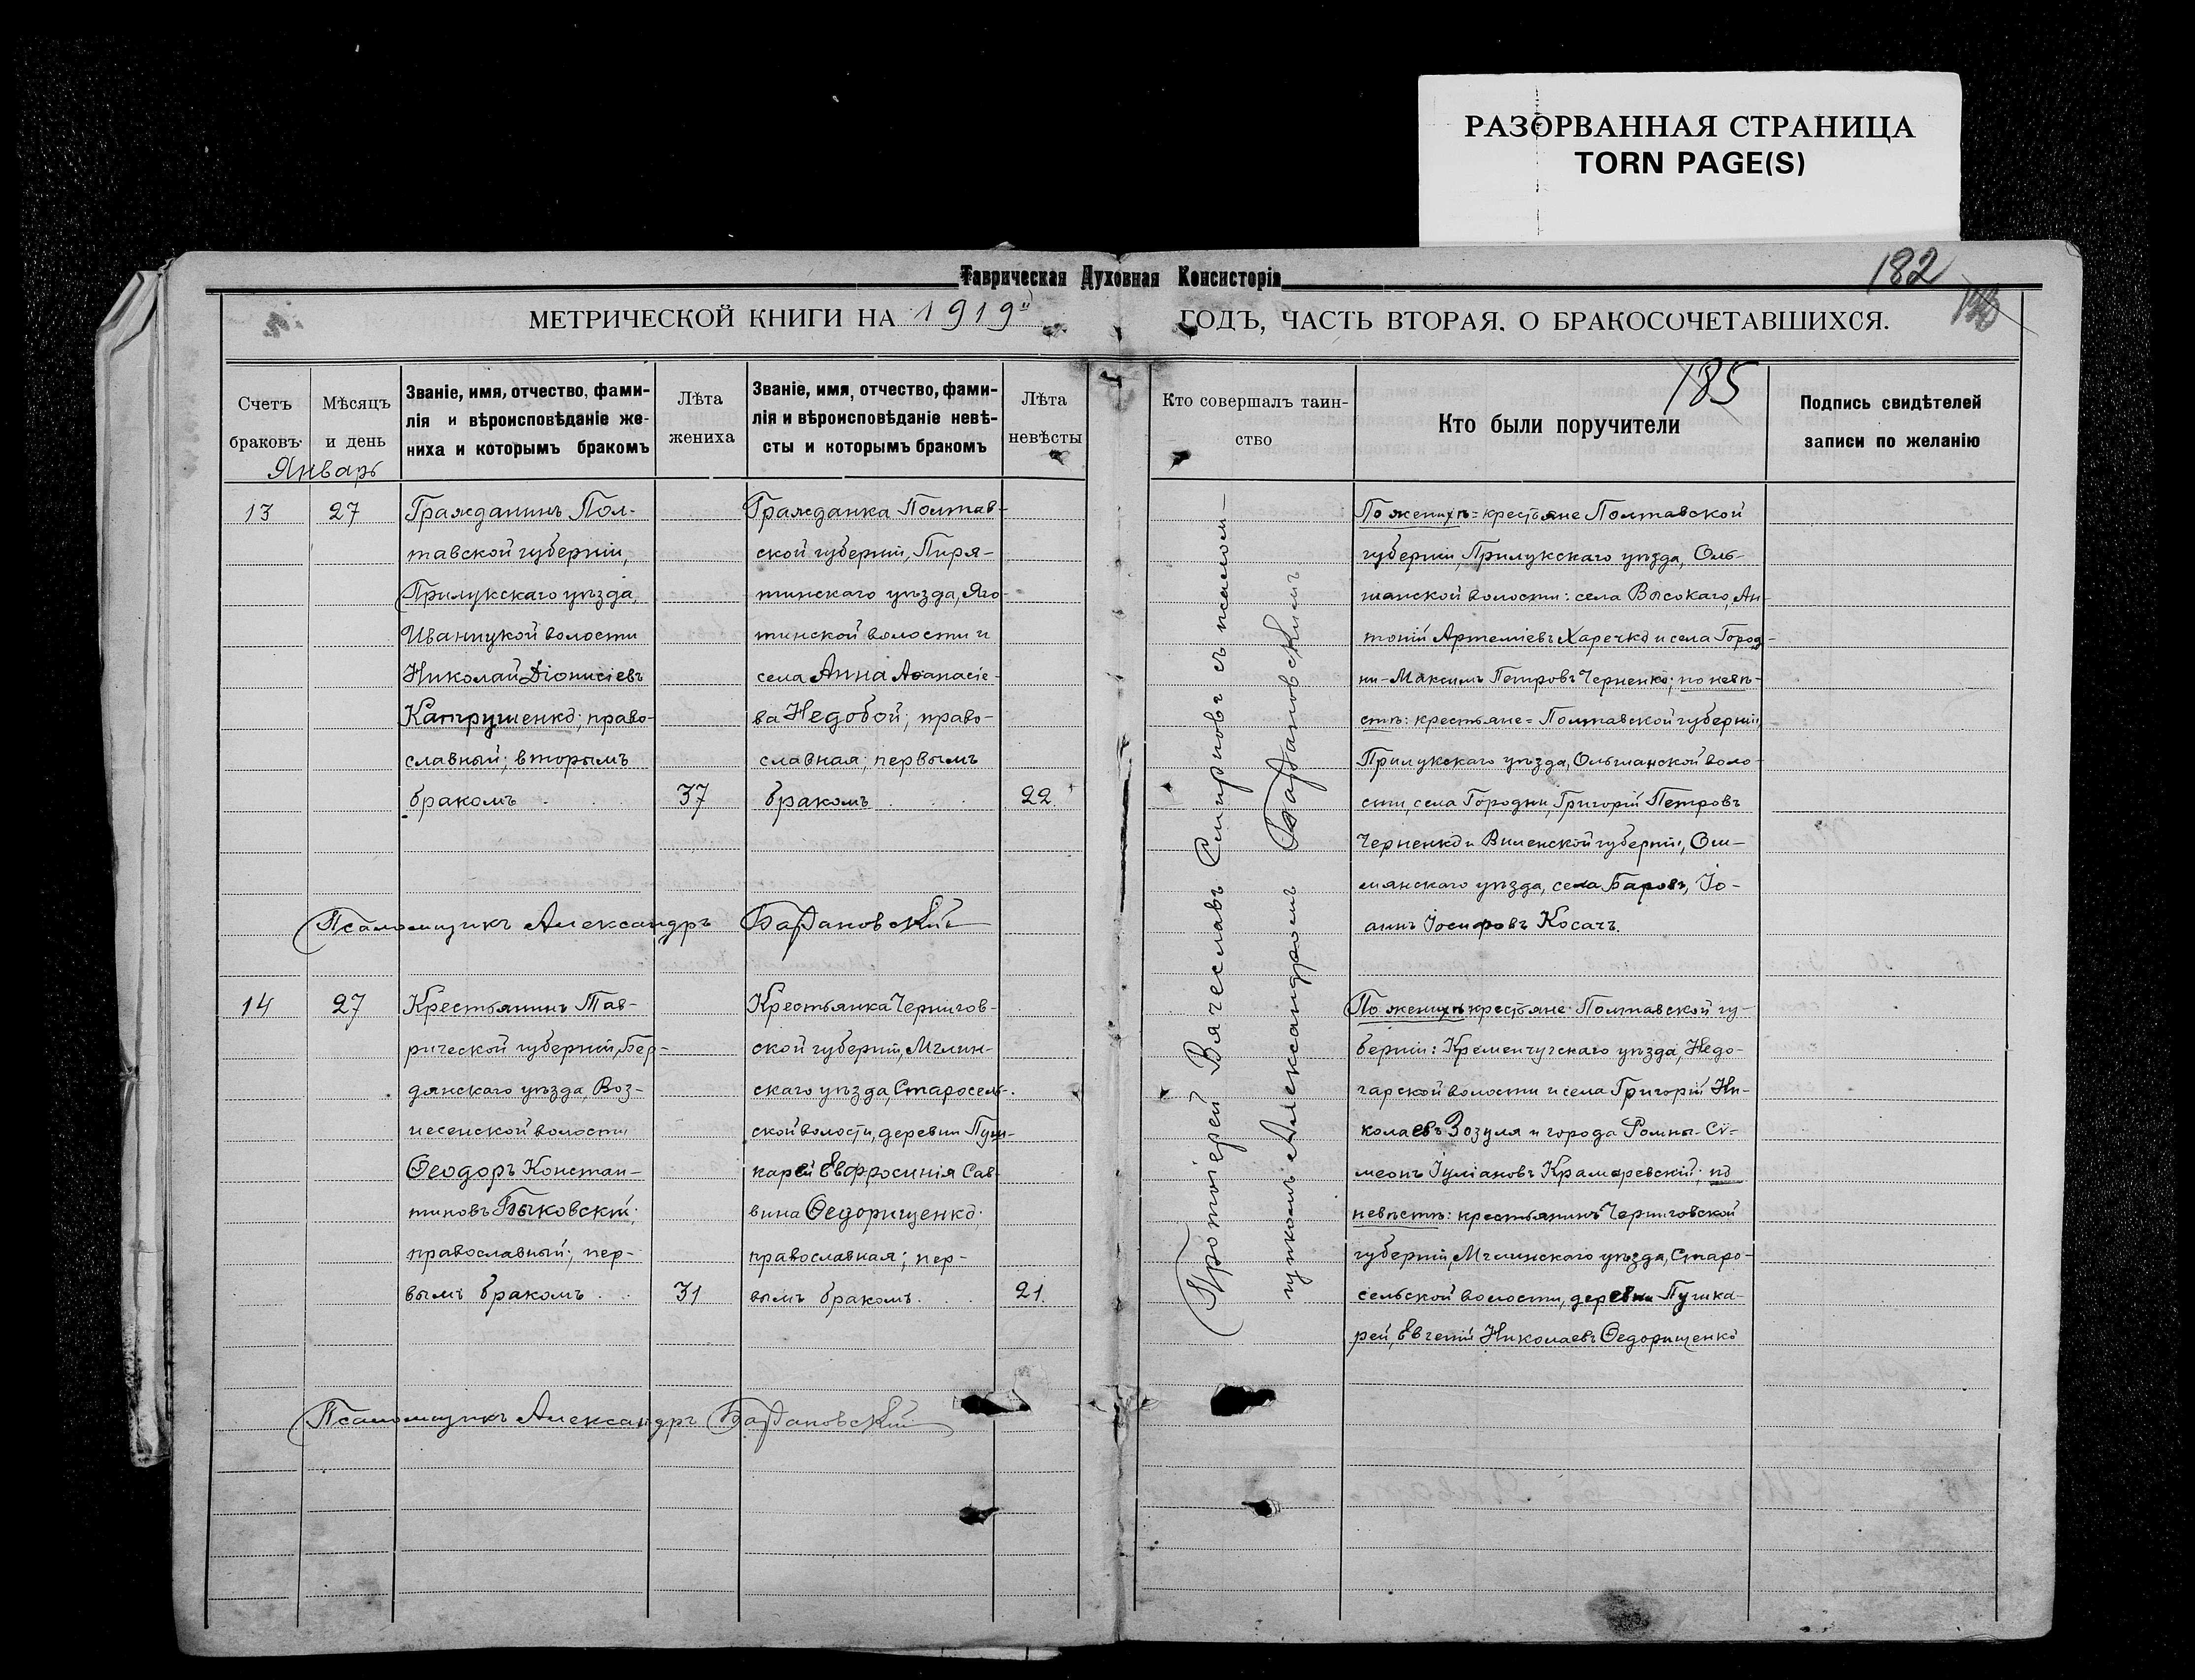 РАЗОРВАННАЯ СТРАНИЦА
TORN PAGE(S)
Таврическая Духовная Консисторія
182
МЕТРИЧЕСКОЙ КНИГИ НА 1919й ГОДЪ, ЧАСТЬ ВТОРАЯ, О БРАКОСОЧЕТАВШИХСЯ.
185
Счетъ
браковъ.
Мѣсяцъ
и день
Званіе, имя, отчество, фами-
лія и вѣроисповѣданіе же-
ниха и которымъ бракомъ
Лѣта
жениха
Званіе, имя, отчество, фами-
лія и вѣроисповѣданіе невѣ-
сты и которымъ бракомъ
Лѣта
невѣсты
Кто совершалъ таин-
ство
Кто были поручители
Подпись свидѣтелей
записи по желанію
Январь
13
27
Гражданинъ Пол-
тавской губерніи,
Прилукскаго уѣзда,
Иваницкой волости
Николай Діонисіевъ
Катрушенко; право-
славный; вторымъ
бракомъ
37
Гражданка Полтав-
ской губерніи, Пиря-
тинскаго уѣзда, Яго-
тинской волости и
села Анна Аѳанасіе-
ва Недобой; право-
славная; первымъ
бракомъ
22.
Протоіерей Вячеславъ Смирновъ съ псалом-
щикомъ Александромъ Бадановскимъ
По женихѣ = крестьяне Полтавской
губерніи, Прилукскаго уѣзда, Оль-
шанской волости: села Высокаго, Ан-
тоній Артеміевъ Харечко и села Город-
ни - Максимъ Петровъ Черненко; по невѣ-
стѣ: крестьяне = Полтавской губерніи,
Прилукскаго уѣзда, Ольшанской воло-
сти, села Городни, Григорій Петровъ
Черненко и Виленской губерніи, Ош-
мянскаго уѣзда, села Баровъ, Іо-
аннъ Іосифовъ Косачъ.
Псаломщикъ Александръ Бадановскій
14
27
Крестьянинъ Тав-
рической губерніи, Бер-
дянскаго уѣзда, Воз-
несенской волости
Ѳеодоръ Констан-
тиновъ Быковскій;
православный; пер-
вымъ бракомъ
31
Крестьянка Чернигов-
ской губерніи, Мглин-
скаго уѣзда, Старосель-
ской волости, деревни Пуш-
карей Евфросинія Сав-
вина Ѳедорищенко;
православная; пер-
вымъ бракомъ.
21.
По женихѣ крестьяне Полтавской гу-
берніи: Кременчугскаго уѣзда, Недо-
гарской волости и села Григорій Ни-
колаевъ Зозуля и города Ромны - Си-
меонъ Іуліановъ Крамаревскій; по
невѣстѣ: крестьянинъ Черниговской
губерніи, Мглинскаго уѣзда, Старо-
сельской волости, деревни Пушка-
рей, Евгеній Николаевъ Ѳедорищенко
Псаломщикъ Александръ Бадановскій